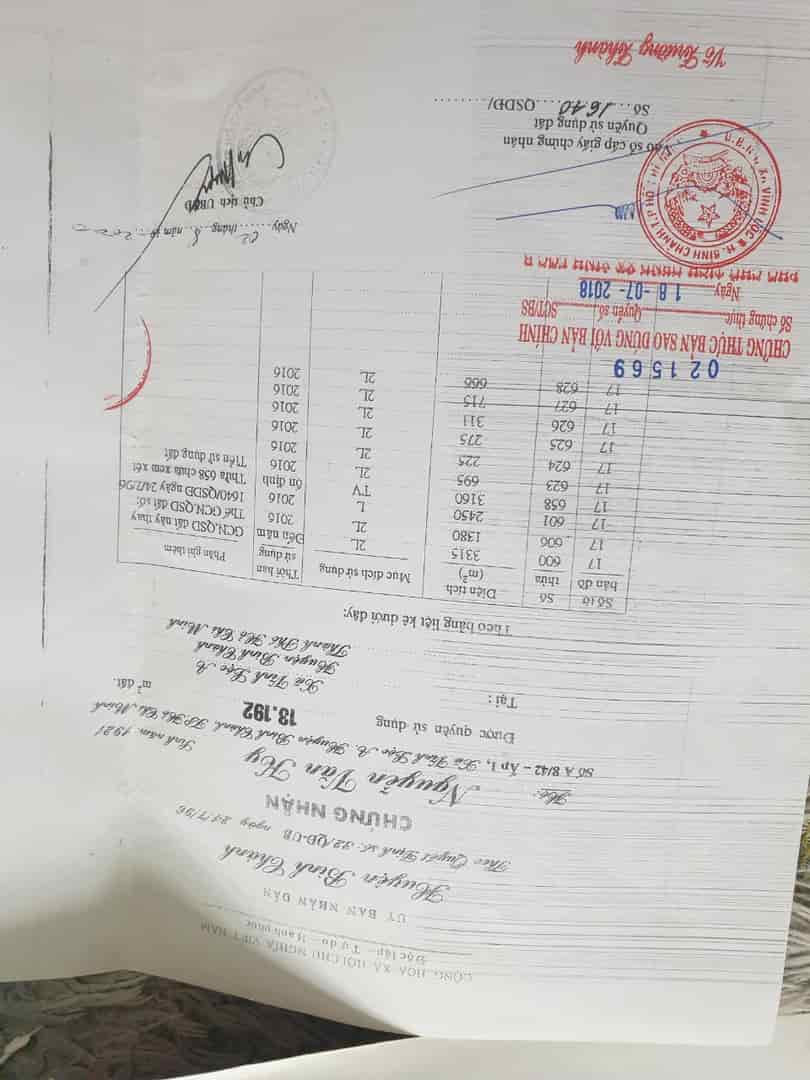 CỘNG HÒA XÃ HỘI CHỦ NGHĨA VIỆT NAM
Độc lập - Tự do - Hạnh phúc
ỦY BAN NHÂN DÂN
Huyện Bình Chánh
Theo Quyết Định số: 32/QĐ-UB ngày 24/7/96
CHỨNG NHẬN
Hộ: Nguyễn Văn Ky Sinh năm 1921
Số A 8/42 - Ấp 1, Xã Vĩnh Lộc A, Huyện Bình Chánh TP Hồ Chí Minh
Được quyền sử dụng 13.192 m² đất.
Tại: Xã Vĩnh Lộc A
Huyện Bình Chánh
Thành Phố Hồ Chí Minh
Theo bảng liệt kê dưới đây:
Số tờ bản đồ Số thửa Diện tích (m²) Mục đích sử dụng Thời hạn sử dụng Phần ghi thêm
17 600 3315 2L Đến năm GCN.QSD đất này thay
17 606 1380 2L 2015 Thế GCN.QSD đất số:
17 601 2450 L 2016 1640/QSDĐ ngày 24/7/96
17 658 3160 TV ổn định Thửa 658 chưa xem xét
17 623 695 2L 2016 Tiền sử dụng đất
17 624 225 2L 2016
17 625 275 2L 2016
17 626 311 2L 2016
17 627 715 2L 2016
17 628 666 2L 2016
021569
CHỨNG THỰC BẢN SAO ĐÚNG VỚI BẢN CHÍNH
Số chứng thực Quyển số SCT/BS
Ngày 18-07-2018
Ngày tháng 8 năm
Chủ tịch UBND
Vào sổ cấp giấy chứng nhận
Quyền sử dụng đất
Số 1640 QSDĐ/
Võ Trường Thành